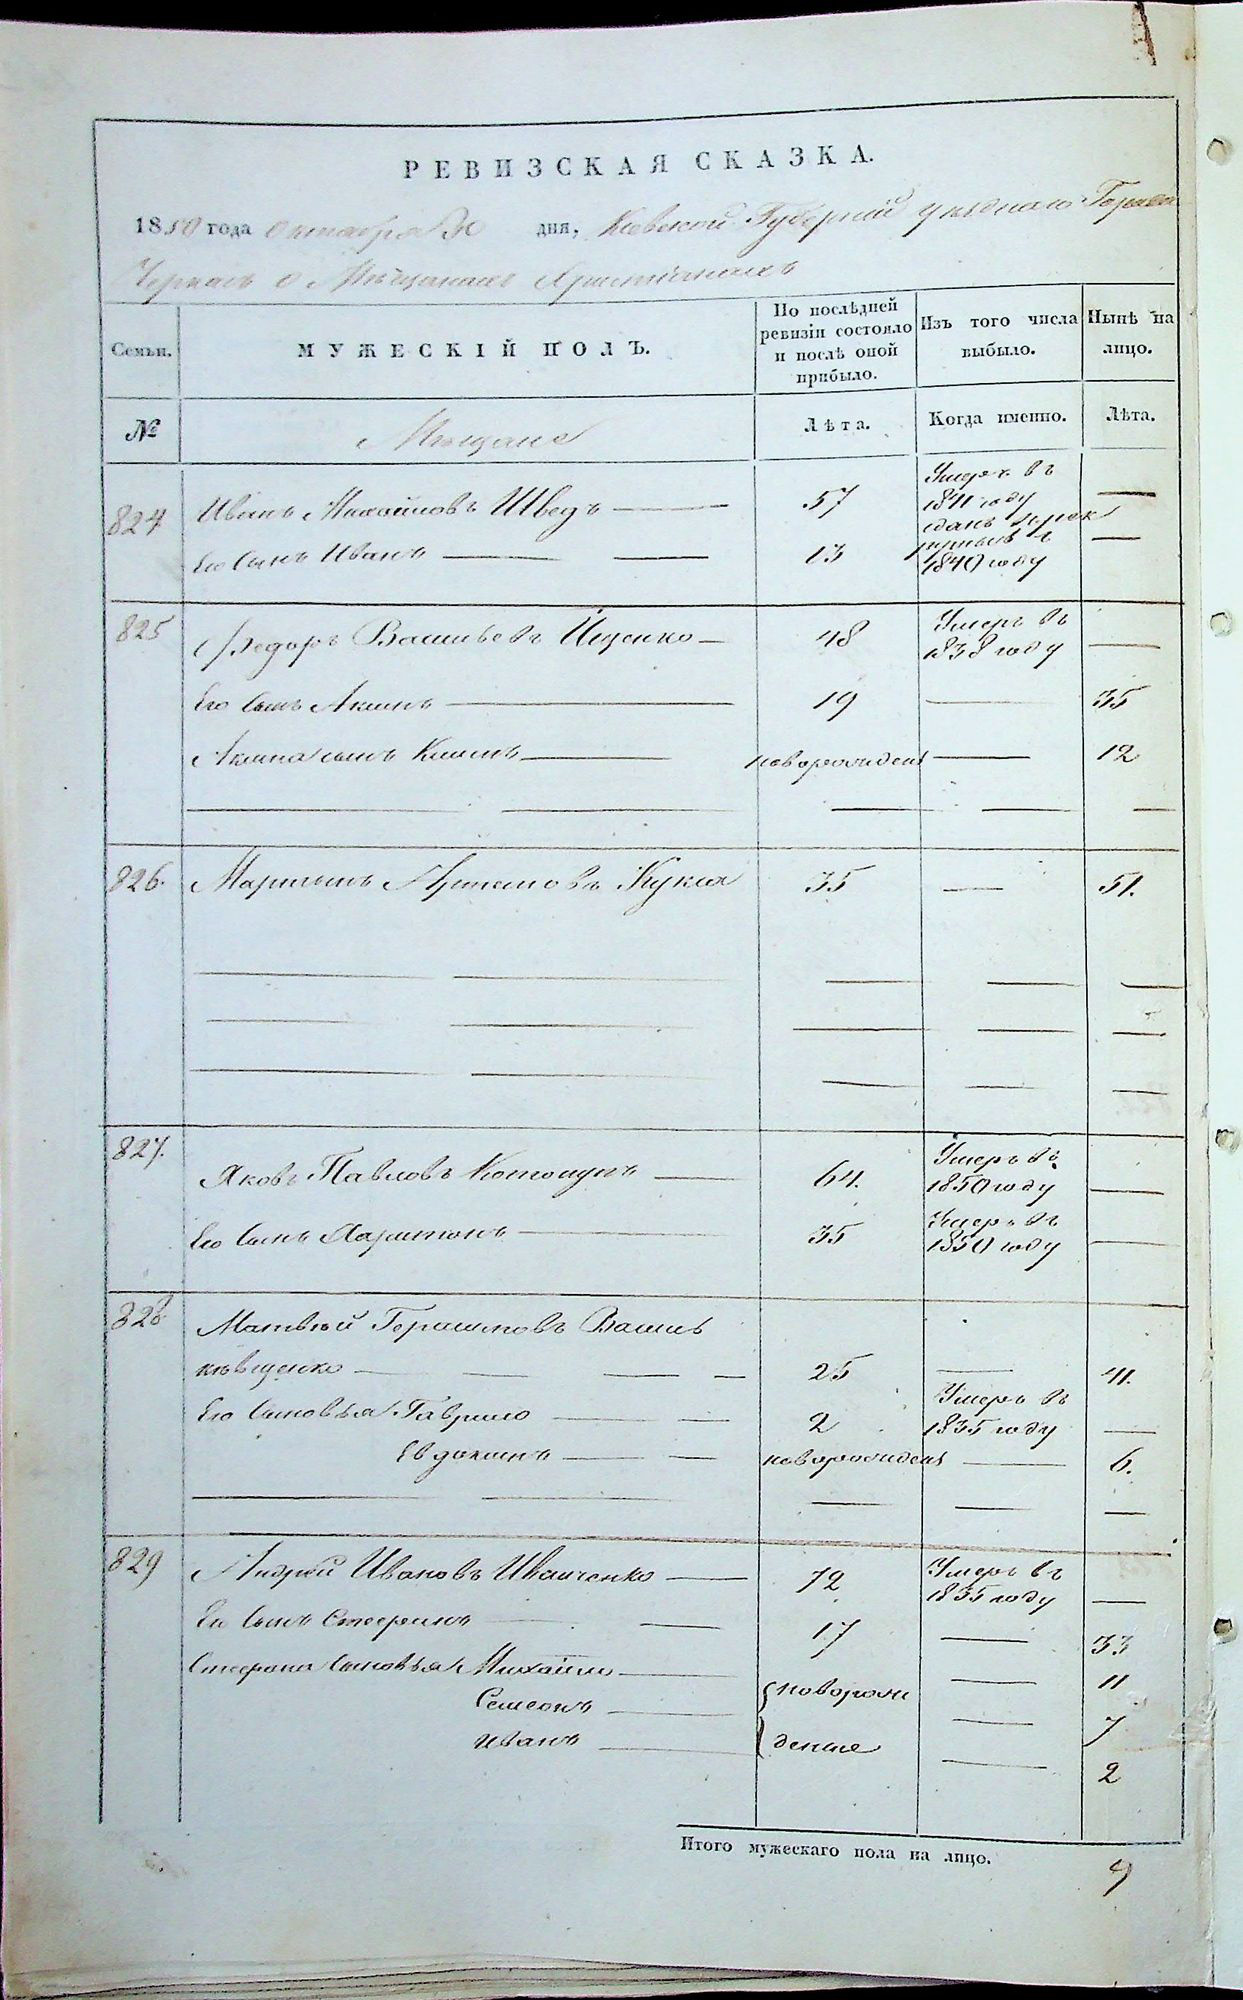 РЕВИЗСКАЯ СКАЗКА.
1850 года Октября 30 дня, Кіевской Губерніи уѣзднаго Города
Черкасъ о Мѣщанахъ Христіанахъ
Семьи. МУЖЕСКІЙ ПОЛЪ. По послѣдней ревизіи состояло и послѣ оной прибыло. Изъ того числа выбыло. Нынѣ на лицо.
№ Мѣщане Лѣта. Когда именно. Лѣта.
824 Иванъ Михайловъ Шведъ 57 Умеръ въ 1841 году
Его Сынъ Иванъ 13 сданъ въ рек 1840 году
825 Ѳедоръ Васильевъ Ищенко 48 Умеръ въ 1838 году
Его Сынъ Акимъ 19 35
Акима сынъ Климъ новорожденъ 12
826. Мартынъ Артемовъ Кукса 35 51.
827. Яковъ Павловъ 64. Умеръ въ 1850 году
Его Сынъ Харитонъ 35 Умеръ въ 1850 году
828 Матвѣй Герасимовъ Василь
кѣвщенко 25 41.
Его Сыновья Гаврило 2 Умеръ въ 1835 году
Евдокимъ новорожденъ 6.
829 Андрей Ивановъ Иванченко 72 Умеръ въ 1835 году
Его Сынъ Стефанъ 17 33
Стефана Сыновья Михайло новорож 11
Семеонъ 7
Иванъ денные 2
Итого мужескаго пола на лицо. 9